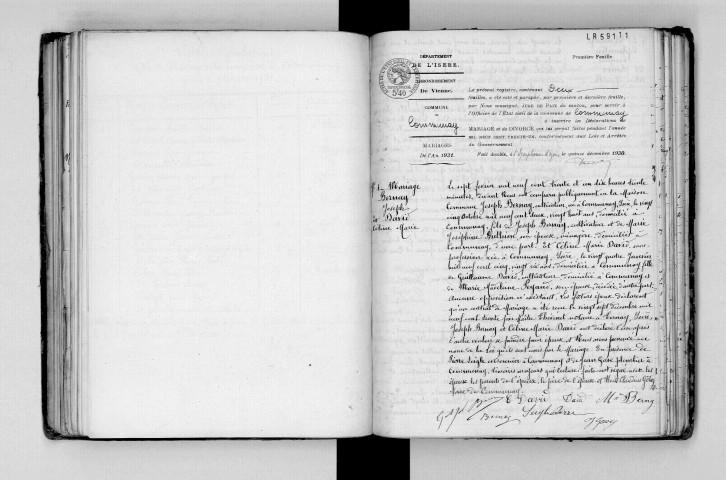 LR59111
DÉPARTEMENT
DE L'ISÈRE.
ARRONDISSEMENT
De Vienne.
COMMUNE
Communay
MARIAGES
De l'An 1931.
Première Feuille
Le présent registre, contenant Deux
feuilles, a été coté et paraphé, par première et dernière feuille,
par Nous soussigné, JUGE DE PAIX du canton, pour servir à
l'Officier de l'État civil de la commune de Communay
à inscrire les Déclarations de
MARIAGE et de DIVORCE, qui lui seront faites pendant l'année
MIL NEUF CENT TRENTE-UN, conformément aux Lois et Arrêtés
du Gouvernement.
Fait double, à St Symphorien d'Ozon, le quinze décembre 1930.
Mariage
Bernay
Joseph
David
Céline Marie
Le sept février mil neuf cent trente et un dix heures trente
minutes, devant Nous ont comparu publiquement en la Maison
Commune Joseph Bernay, cultivateur, né à Communay, Isère, le vingt
cinq octobre mil neuf cent deux, vingt huit ans, domicilié à
Communay, fils de Joseph Bernay, cultivateur et de Marie
Joséphine son épouse, ménagère, domiciliés à
Communay, d'une part. Et Céline Marie David, sans
profession, née à Communay, Isère, le vingt quatre Janvier
mil neuf cent cinq, vingt six ans, domiciliée à Communay fille
de Guillaume David, cultivateur, domicilié à Communay et
de Marie son épouse, décédée d'autre part.
Aucune opposition n'existant. Les futurs époux déclarent
qu'un contrat de Mariage a été reçu le vingt sept décembre mil
neuf cent trente par Maître notaire à Ternay, Isère.
Joseph Bernay et Céline Marie David ont déclaré l'un après
l'autre vouloir se prendre pour époux et Nous avons prononcé au
nom de la Loi qu'ils sont unis par le Mariage. En présence de
Pierre à Communay et de Jean à
Communay, témoins majeurs qui lecture faite ont signé avec les
époux, les parents de l'époux, le père de l'épouse et Nous
Maire de Communay.
C David David M Bernay
Bernay